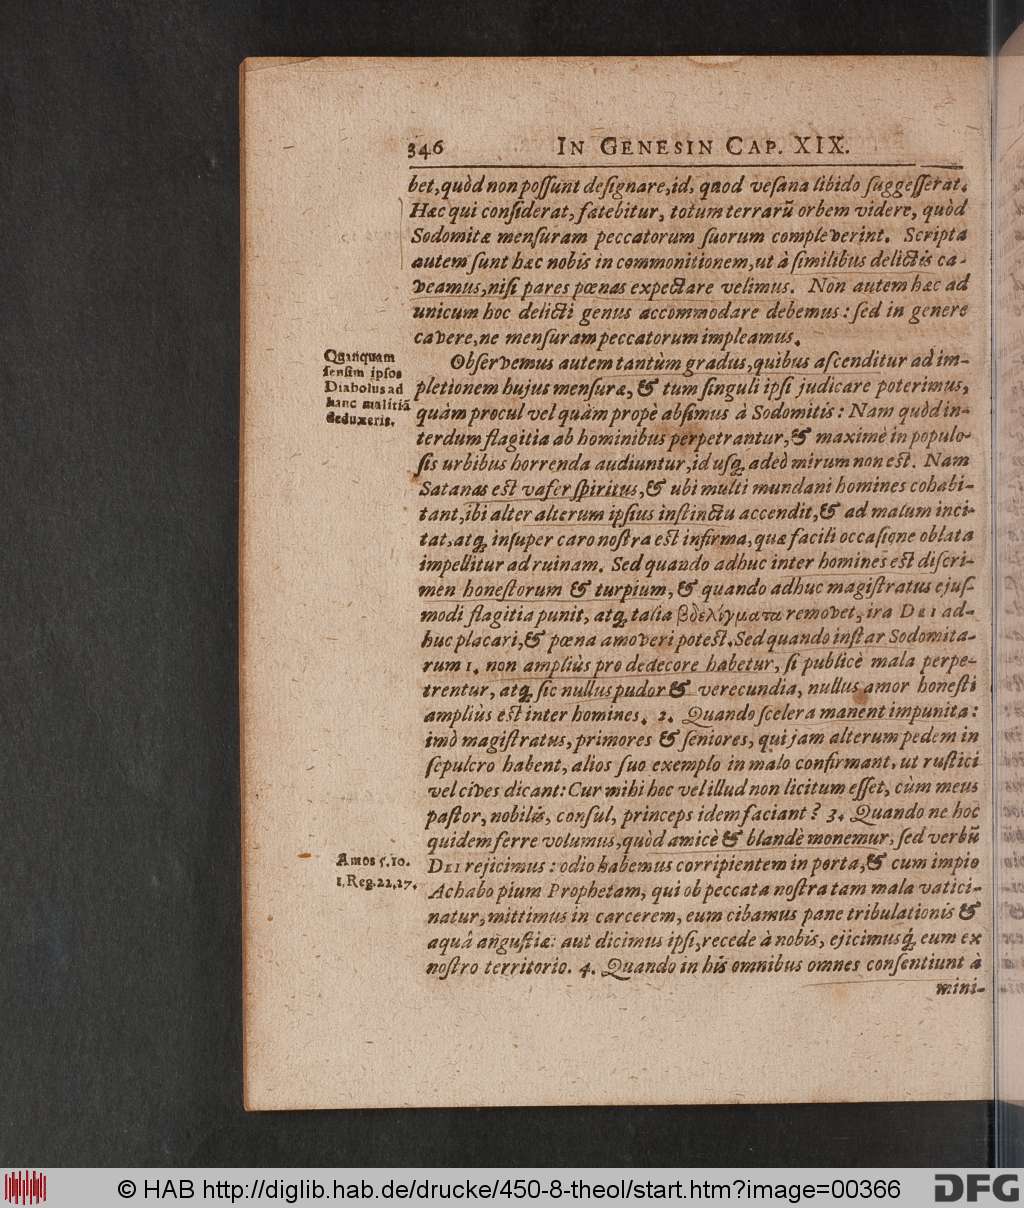 346 IN GENESIN CAP. XIX.
bet, quòd non poſſunt deſignare, id, quod veſana libido ſuggeſſerat.
Hæc qui conſiderat, fatebitur, totum terrarũ orbem videre, quòd
Sodomitæ menſuram peccatorum ſuorum compleverint. Scripta
autem ſunt hæc nobis in commonitionem, ut à ſimilibus delictis ca-
veamus, niſi pares pœnas expectare velimus. Non autem hæc ad
unicum hoc delicti genus accommodare debemus: ſed in genere
cavere, ne menſuram peccatorum impleamus.
Quanquam
ſenſim ipſos
Diabolus ad
hanc malitiã
deduxeris.
Obſervemus autem tantùm gradus, quibus aſcenditur ad im-
pletionem hujus menſuræ, & tum ſinguli ipſi judicare poterimus,
quàm procul vel quàm propè abſimus à Sodomitis: Nam quòd in-
terdum flagitia ab hominibus perpetrantur, & maximè in populo-
ſis urbibus horrenda audiuntur, id uſq́; adeò mirum non eſt. Nam
Satanas eſt vafer ſpiritus, & ubi multi mundani homines cohabi-
tant, ibi alter alterum ipſius inſtinctu accendit, & ad malum inci-
tat, atq́; inſuper caro noſtra eſt infirma, quæ facili occaſione oblata
impellitur ad ruinam. Sed quando adhuc inter homines eſt diſcri-
men honeſtorum & turpium, & quando adhuc magiſtratus ejuſ-
modi flagitia punit, atq́; talia βδελίγματα removet, ira DEI ad-
huc placari, & pœna amoveri poteſt. Sed quando inſtar Sodomita-
rum 1. non ampliùs pro dedecore habetur, ſi publicè mala perpe-
trentur, atq́; ſic nullus pudor & verecundia, nullus amor honeſti
ampliùs eſt inter homines. 2. Quando ſcelera manent impunita:
imò magiſtratus, primores & ſeniores, qui jam alterum pedem in
ſepulcro habent, alios ſuo exemplo in malo confirmant, ut ruſtici
vel cives dicant: Cur mihi hoc vel illud non licitum eſſet, cùm meus
paſtor, nobilis, conſul, princeps idem faciant? 3. Quando ne hoc
quidem ferre volumus, quòd amicè & blandè monemur, ſed verbũ
Amos 5. 10.
1. Reg. 22, 27.
DEI rejicimus: odio habemus corripientem in porta, & cum impio
Achabo pium Prophetam, qui ob peccata noſtra tam mala vatici-
natur, mittimus in carcerem, eum cibamus pane tribulationis &
aquâ anguſtiæ: aut dicimus ipſi, recede à nobis, ejicimusq́; eum ex
noſtro territorio. 4. Quando in his omnibus omnes conſentiunt à
mini-
© HAB http://diglib.hab.de/drucke/450-8-theol/start.htm?image=00366
DFG